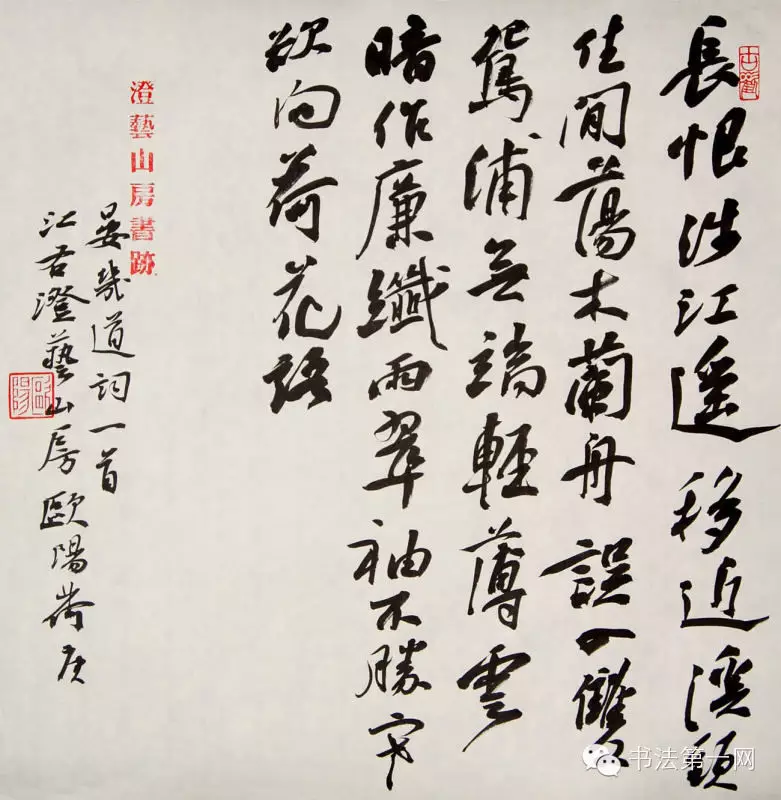 長恨涉江遥移近溪頭
住閒蕩木蘭舟誤入雙
鴛浦无端輕薄雲
暗作廉纖雨翠袖不勝寒
欲向荷花語
澄藝山房書跡
晏幾道詞一首
江右澄藝山房歐陽荷庚
书法第一网